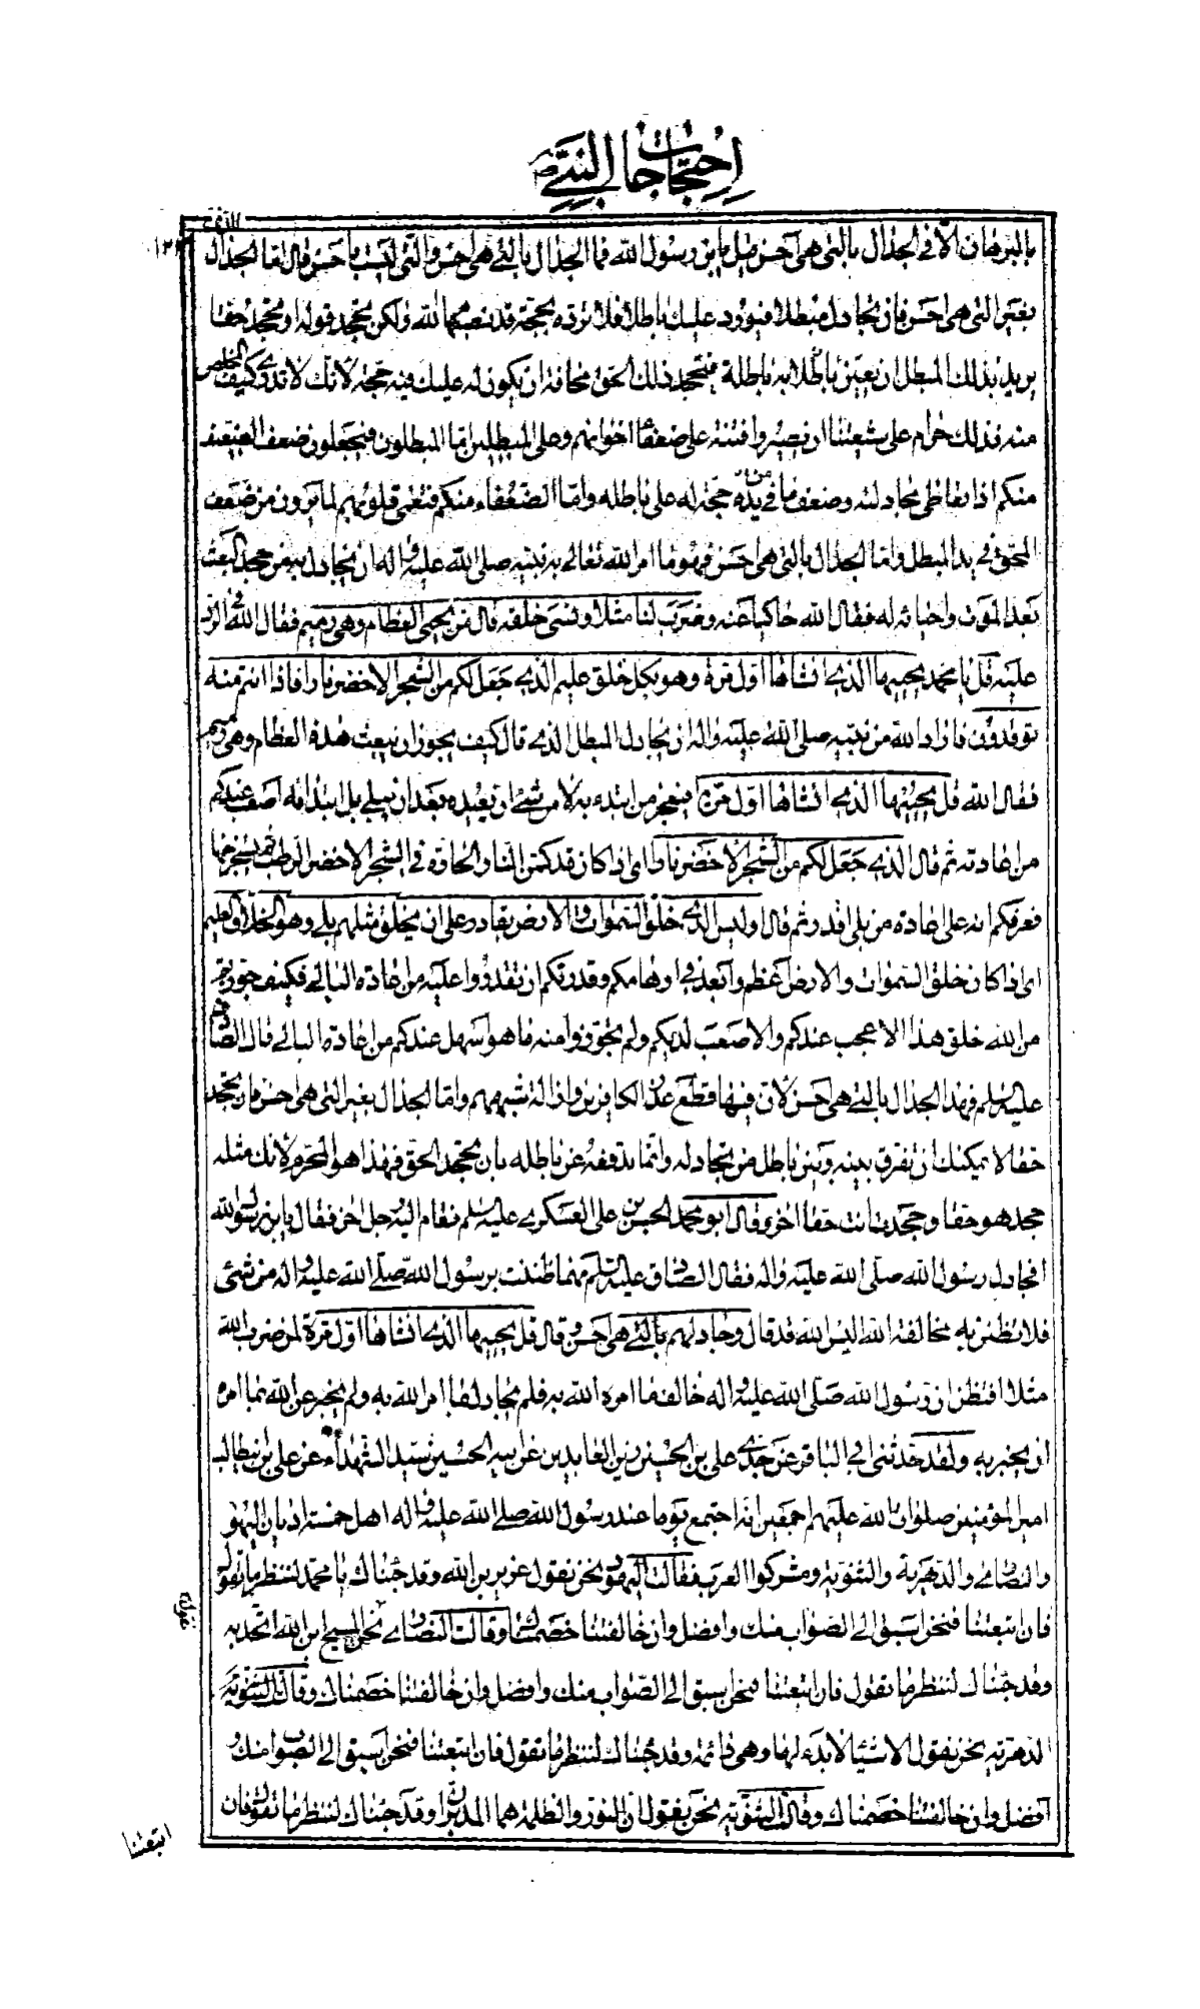 احتجاجات النبي ص
بالبرهان الا في الجدال بالتي هي احسن قيل يابن رسول الله فما الجدال بالتي هي احسن والتي ليست باحسن قال اما الجدال
بغير التي هي احسن فان تجادل مبطلا فيورد عليك باطلا فلا ترده بحجة قد نصبها الله ولكن تجحد قوله او تجحد حقا
يريد بذلك المبطل ان يعين به باطله فتجحد ذلك الحق مخافة ان يكون له عليك فيه حجة لانك لا تدري كيف المخلص
منه فذلك حرام على شيعتنا ان يصيروا فتنة على ضعفاء اخوانهم وعلى المبطلين اما المبطلون فيجعلون ضعف الضعيف
منكم اذا تعاطى مجادلته وضعف ما في يده حجة له على باطله واما الضعفاء منكم فتغمى قلوبهم لما يرون من ضعف
المحق في يد المبطل واما الجدال بالتي هي احسن فهو ما امر الله تعالى به نبيه صلى الله عليه واله ان يجادل به من جحد البعث
بعد الموت واحيائه له فقال الله حاكيا عنه وضرب لنا مثلا ونسي خلقه قال من يحيي العظام وهي رميم فقال الله في الرد
عليه قل يا محمد يحييها الذي انشاها اول مرة وهو بكل خلق عليم الذي جعل لكم من الشجر الاخضر نارا فاذا انتم منه
توقدون فاراد الله من نبيه صلى الله عليه واله ان يجادل المبطل الذي قال كيف يجوز ان يبعث هذه العظام وهي رميم
فقال الله قل يحييها الذي انشاها اول مرة افيعجز من ابتدء به لا من شيء ان يعيده بعد ان يبلى بل ابتداؤه اصعب عندكم
من اعادته ثم قال الذي جعل لكم من الشجر الاخضر نارا اي اذا كان قد كمن النار الحارة في الشجر الاخضر الرطب ثم يستخرجها
فعرفكم انه على اعادة من بلى اقدر ثم قال اوليس الذي خلق السموات والارض بقادر على ان يخلق مثلهم بلى وهو الخلاق العليم
اي اذا كان خلق السموات والارض اعظم وابعد في اوهامكم وقدركم ان تقدروا عليه من اعادة البالي فكيف جوزتم
من الله خلق هذا الاعجب عندكم والاصعب لديكم ولم تجوزوا منه ما هو اسهل عندكم من اعادة البالي قال الصادق
عليه السلم فهذا الجدال بالتي هي احسن لان فيها قطع عذر الكافرين وازالة شبههم واما الجدال بغير التي هي احسن فان تجحد
حقا لا يمكنك ان تفرق بينه وبين باطل من تجادله وانما تدفعه عن باطله بان تجحد الحق فهذا هو المحرم لانك مثله
جحد هو حقا وجحدت انت حقا اخر وقال ابو محمد الحسن بن علي العسكري عليه السلم فقام اليه رجل اخر فقال يابن رسول الله
افجادل رسول الله صلى الله عليه واله فقال الصادق عليه السلم مهما ظننت برسول الله صلى الله عليه واله من شيء
فلا تظنن به مخالفة الله اليس الله قد قال وجادلهم بالتي هي احسن وقال قل يحييها الذي انشاها اول مرة لمن ضرب الله
مثلا افتظن ان رسول الله صلى الله عليه واله خالف ما امره الله به فلم يجادل بما امر الله به ولم يخبر عن الله بما امره
ان يخبر به ولقد حدثني ابي الباقر عن جدي علي بن الحسين زين العابدين عن ابيه الحسين سيد الشهداء عن علي بن ابيطالب
امير المؤمنين صلوات الله عليهم اجمعين انه اجتمع يوما عند رسول الله صلى الله عليه واله اهل خمسة اديان اليهود
والنصارى والدهرية والثنوية ومشركوا العرب فقالت اليهود نحن نقول عزير بن الله وقد جئناك يا محمد لننظر ما تقول
فان اتبعتنا فنحن اسبق الى الصواب منك وافضل وان خالفتنا خصمناك وقالت النصارى نحن نقول المسيح ابن الله اتحد به
وقد جئناك لننظر ما تقول فان اتبعتنا فنحن اسبق الى الصواب منك وافضل وان خالفتنا خصمناك وقالت
الدهرية نحن نقول الاشياء لا بدء لها وهي دائمة وقد جئناك لننظر ما تقول فان اتبعتنا فنحن اسبق الى الصواب منك و
افضل وان خالفتنا خصمناك وقالت الثنوية نحن نقول ان النور والظلمة هما المدبران وقد جئناك لننظر ما تقول فان
اتبعتنا